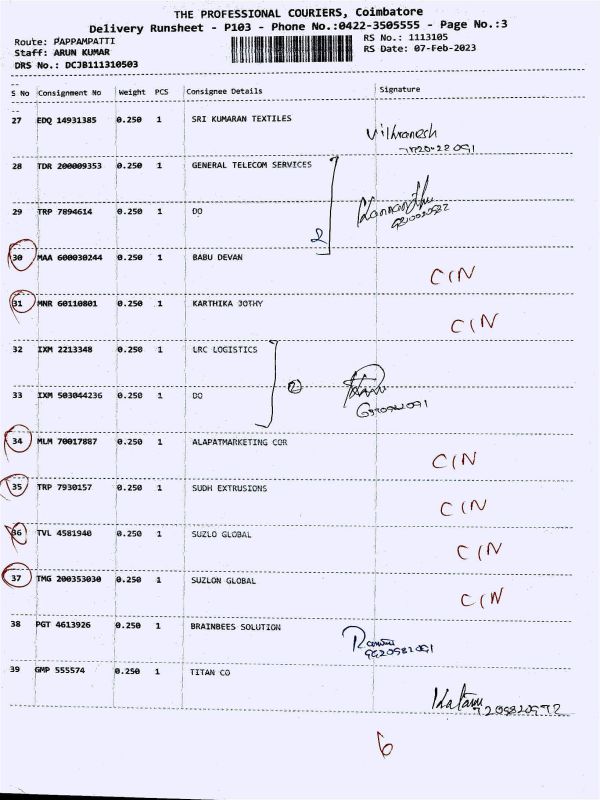 THE PROFESSIONAL COURIERS, Coimbatore
Delivery Runsheet - P103 - Phone No.:0422-3505555 - Page No.:3
Route: PAPPAMPATTI RS No.: 1113105
Staff: ARUN KUMAR RS Date: 07-Feb-2023
DRS No.: DCJB111310503
S No Consignment No Weight PCS Consignee Details Signature
27 EDQ 14931385 0.250 1 SRI KUMARAN TEXTILES
28 TDR 200009353 0.250 1 GENERAL TELECOM SERVICES
29 TRP 7894614 0.250 1 DO
2
30 MAA 600030244 0.250 1 BABU DEVAN CIN
31 MNR 60110801 0.250 1 KARTHIKA JOTHY CIN
32 IXM 2213348 0.250 1 LRC LOGISTICS
2
33 IXM 503044236 0.250 1 DO
34 MLM 70017887 0.250 1 ALAPATMARKETING COR CIN
35 TRP 7930157 0.250 1 SUDH EXTRUSIONS CIN
36 TVL 4581940 0.250 1 SUZLO GLOBAL CIN
37 TMG 200353030 0.250 1 SUZLON GLOBAL CIN
38 PGT 4613926 0.250 1 BRAINBEES SOLUTION
39 GMP 555574 0.250 1 TITAN CO
6